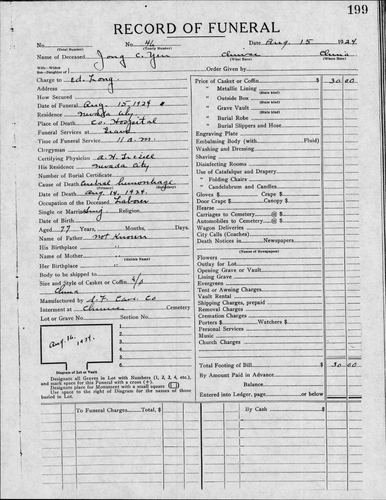 199
RECORD OF FUNERAL
No. No. 46 Date Aug. 15 1924
(Total Number) (Yearly Number)
Name of Deceased Jong C. Yen Chinese China
(What Race) (Where Born)
Wife—Widow
Son—Daughter of Order Given by
Charge to Ed. Long
Address
How Secured
Date of Funeral Aug. 15, 1924
Residence Nevada City
Place of Death Co. Hospital
Funeral Services at Grave
Time of Funeral Service 11 a.m.
Clergyman
Certifying Physician
His Residence Nevada City
Number of Burial Certificate
Cause of Death Cerebral hemorrhage
Date of Death Aug. 14, 1924.
Occupation of the Deceased Labour
Single or Married Sing Religion
Date of Birth
Aged 77 Years, Months, Days.
Name of Father not Known
His Birthplace
Name of Mother
Her Birthplace
Body to be shipped to
Size and Style of Casket or Coffin 6/0
China
Manufactured by S.F. Cask. Co
Interment at Chinese Cemetery
Lot or Grave No. Section No.
Aug. 16, 1924.
1
2
3
4
5
6
Diagram of Lot or Vault
Designate all Graves in Lot with Numbers (1, 2, 3, 4, etc.),
and mark space for this Funeral with a cross (+).
Designate place for Monument with a small square
Use space to the right of Diagram for the names of those
buried in Lot.
Price of Casket or Coffin $ 30 00
" Metallic Lining
(State kind)
" Outside Box
(State kind)
" Grave Vault
(State kind)
" Burial Robe
(State kind)
" Burial Slippers and Hose
Engraving Plate
Embalming Body (with Fluid)
Washing and Dressing
Shaving
Disinfecting Rooms
Use of Catafalque and Drapery
" Folding Chairs
" Candelabrum and Candles
Gloves $ Crape $
Door Crape $ Canopy $
Hearse
Carriages to Cemetery @ $
Automobiles to Cemetery @ $
Wagon Deliveries
City Calls (Coaches)
Death Notices in Newspapers
(Names of Newspapers)
Flowers
Outlay for Lot
Opening Grave or Vault
Lining Grave
Evergreen
Tent or Awning Charges
Vault Rental
Shipping Charges, prepaid
Removal Charges
Cremation Charges
Porters $ Watchers $
Personal Services
Music
Church Charges
Total Footing of Bill $ 30 00
By Amount Paid in Advance
Balance
Entered into Ledger, page or below
To Funeral Charges Total, $
By Cash $